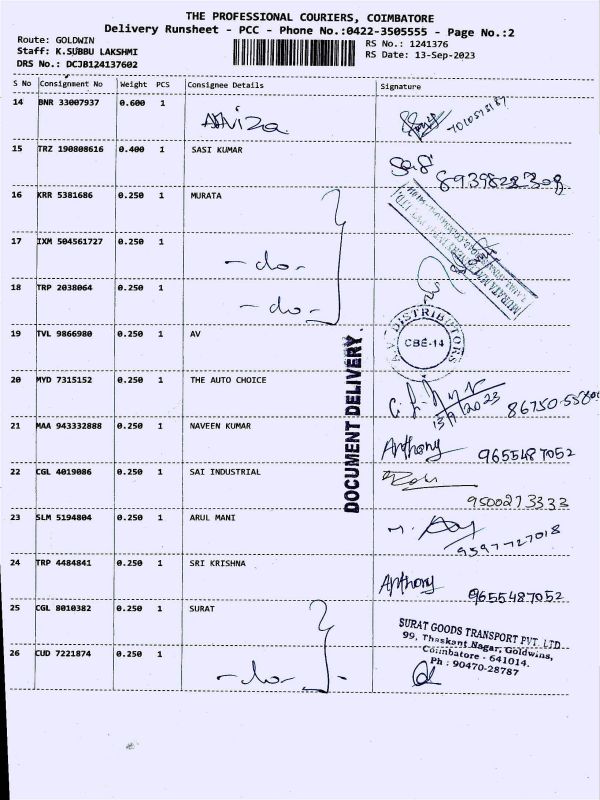 THE PROFESSIONAL COURIERS, COIMBATORE
Delivery Runsheet - PCC - Phone No.:0422-3505555 - Page No.:2
Route: GOLDWIN
RS No.: 1241376
Staff: K.SUBBU LAKSHMI
RS Date: 13-Sep-2023
DRS No.: DCJB124137602
S No Consignment No Weight PCS Consignee Details Signature
14 BNR 33007937 0.600 1
15 TRZ 190808616 0.400 1 SASI KUMAR
8939828308
16 KRR 5381686 0.250 1 MURATA
17 IXM 504561727 0.250 1 - do -
18 TRP 2038064 0.250 1 - do -
19 TVL 9866980 0.250 1 AV
A.V. DISTRIBUTORS
CBE-14
DOCUMENT DELIVERY
20 MYD 7315152 0.250 1 THE AUTO CHOICE
13/9/2023
21 MAA 943332888 0.250 1 NAVEEN KUMAR Anthony 9655487052
22 CGL 4019086 0.250 1 SAI INDUSTRIAL
9500273333
23 SLM 5194804 0.250 1 ARUL MANI
9597727018
24 TRP 4484841 0.250 1 SRI KRISHNA Anthony 9655487052
25 CGL 8010382 0.250 1 SURAT
SURAT GOODS TRANSPORT PVT. LTD
99, Thaskant Nagar, Goldwins,
Coimbatore - 641014.
Ph : 90470-28787
26 CUD 7221874 0.250 1 - do -